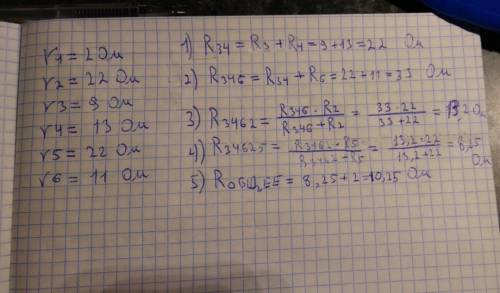 r1 = 2 Ом
r2 = 22 Ом
r3 = 9 Ом
r4 = 13 Ом
r5 = 22 Ом
r6 = 11 Ом
1) R34 = R3 + R4 = 9 + 13 = 22 Ом
2) R346 = R34 + R6 = 22 + 11 = 33 Ом
3) R3462 = R346 · R2 / R346 + R2 = 33 · 22 / 33 + 22 = 13,2 Ом
4) R34625 = R3462 · R5 / R3462 + R5 = 13,2 · 22 / 13,2 + 22 = 8,25 Ом
5) RОБЩЕЕ = 8,25 + 2 = 10,25 Ом